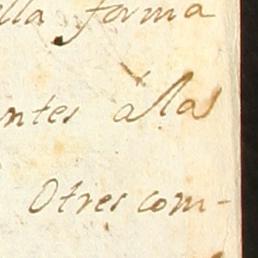 lla forma
ntes á las
Otres com-